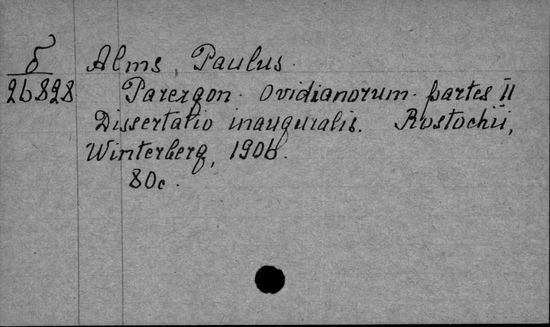 δ
26828
Alms, Paulus.
Parergon Ovidianorum partes II
Dissertatio inauguralis. Rostochii,
Winterberg, 1906.
80c.